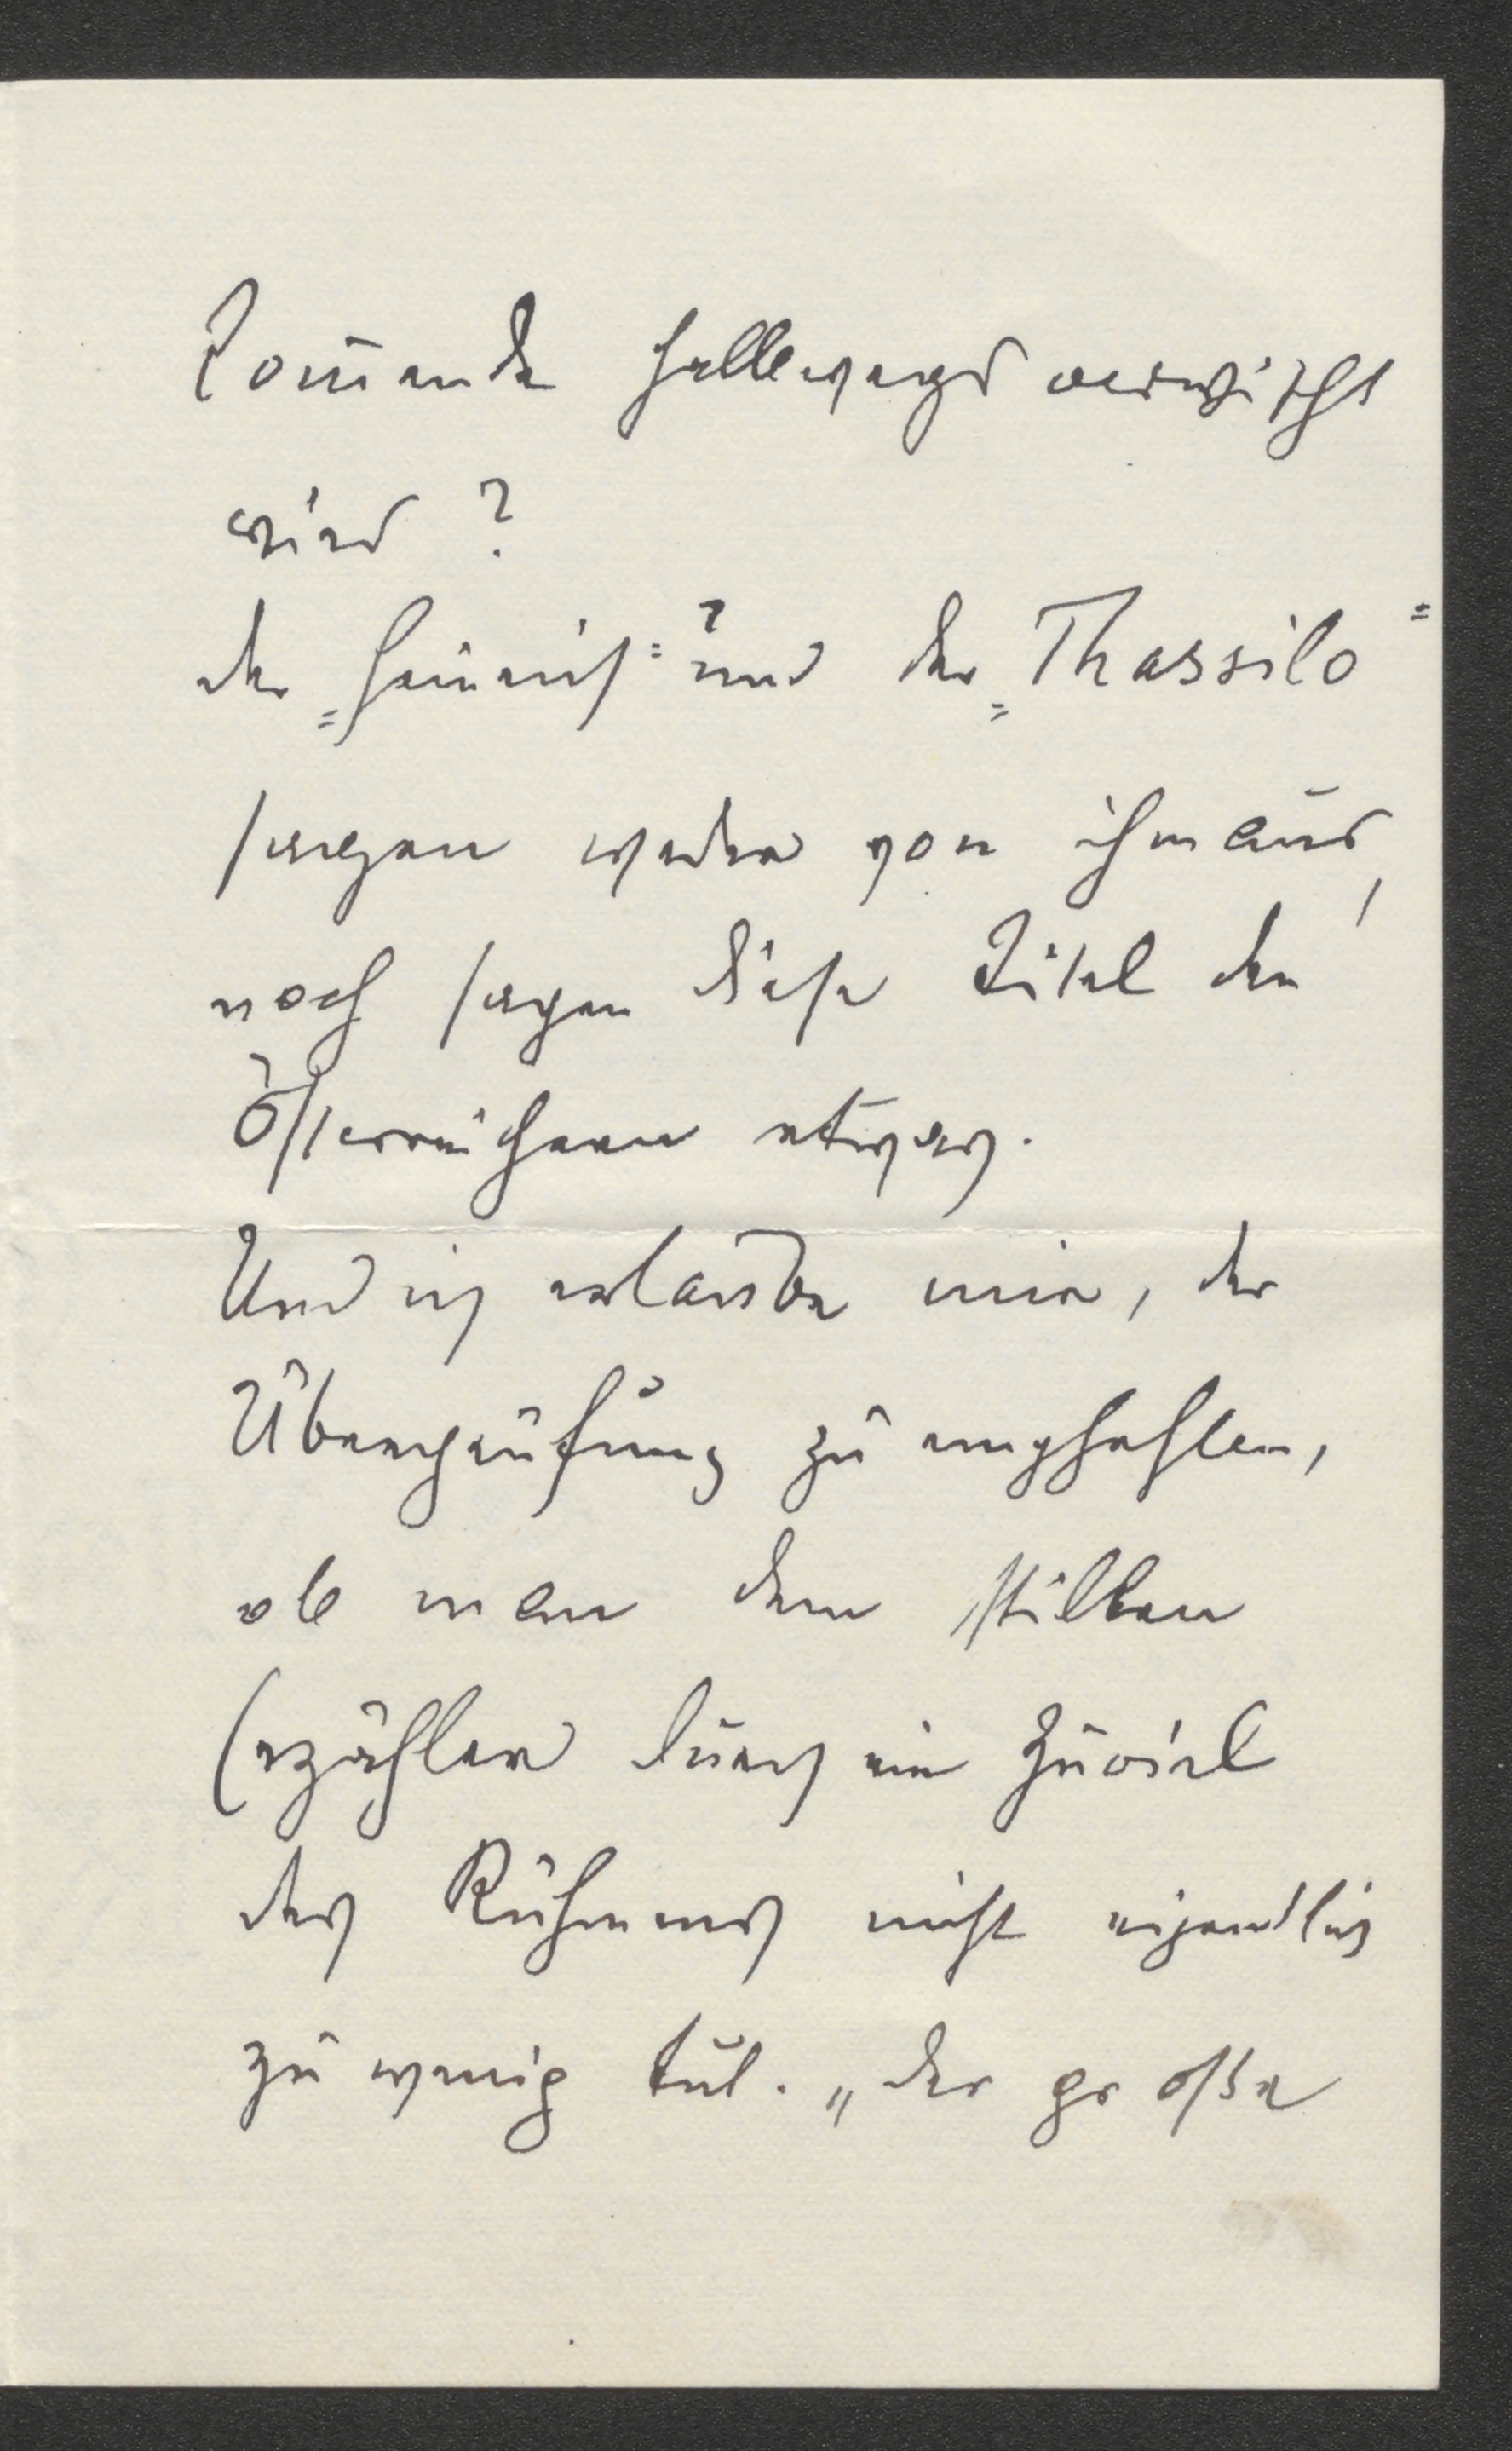 halbwegs verwischt
wird?
der „Heinrich“ und der „Thassilo“
sagen weder von ihm aus,
noch sagen diese Titel den
Österreichern etwas.
Und ich erlaube mir, der
Überprüfung zu empfehlen,
ob man dem stillen
Erzähler durch ein Zuviel
des Rühmens nicht eigentlich
zu wenig tut. „der große